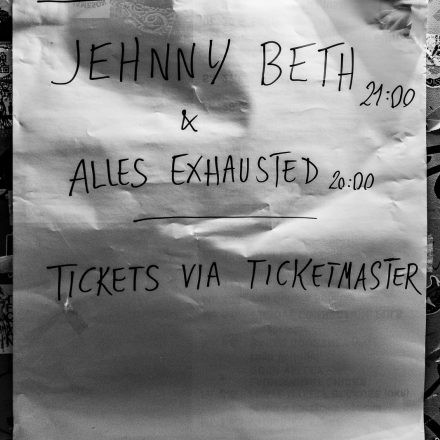 JEHNNY BETH 21:00
&
ALLES EXHAUSTED 20:00
TICKETS VIA TICKETMASTER